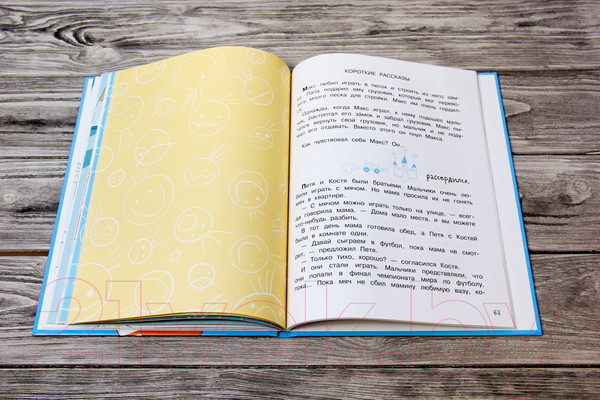 КОРОТКИЕ РАССКАЗЫ
Макс любил играть в песок и строить из него зам-
ки. Папа подарил ему грузовик, который мог перево-
зить много песка для стройки. Макс им очень гордил-
ся.
Однажды, когда Макс играл, к нему подошёл маль-
чик, растоптал его замок и забрал грузовик. Макс пы-
тался вернуть свой грузовик, но мальчик и не поду-
мал его отдавать. Вместо этого он пнул Макса.
Как чувствовал себя Макс? Он...
рассердили.
Петя и Костя были братьями. Мальчики очень лю-
били играть с мячом. Но мама просила их не гонять
мяч в квартире.
— С мячом можно играть только на улице, — всег-
да говорила мама. — Дома мало места, и вы можете
что-нибудь разбить.
В тот день мама готовила обед, а Петя с Костей
были в комнате одни.
— Давай сыграем в футбол, пока мама не смот-
рит, — предложил Петя.
— Только тихо, хорошо? — согласился Костя.
И они стали играть. Мальчики представляли, что
они попали в финал чемпионата мира по футболу,
пока... Пока мяч не сбил мамину любимую вазу, ко-
63
21vek.by